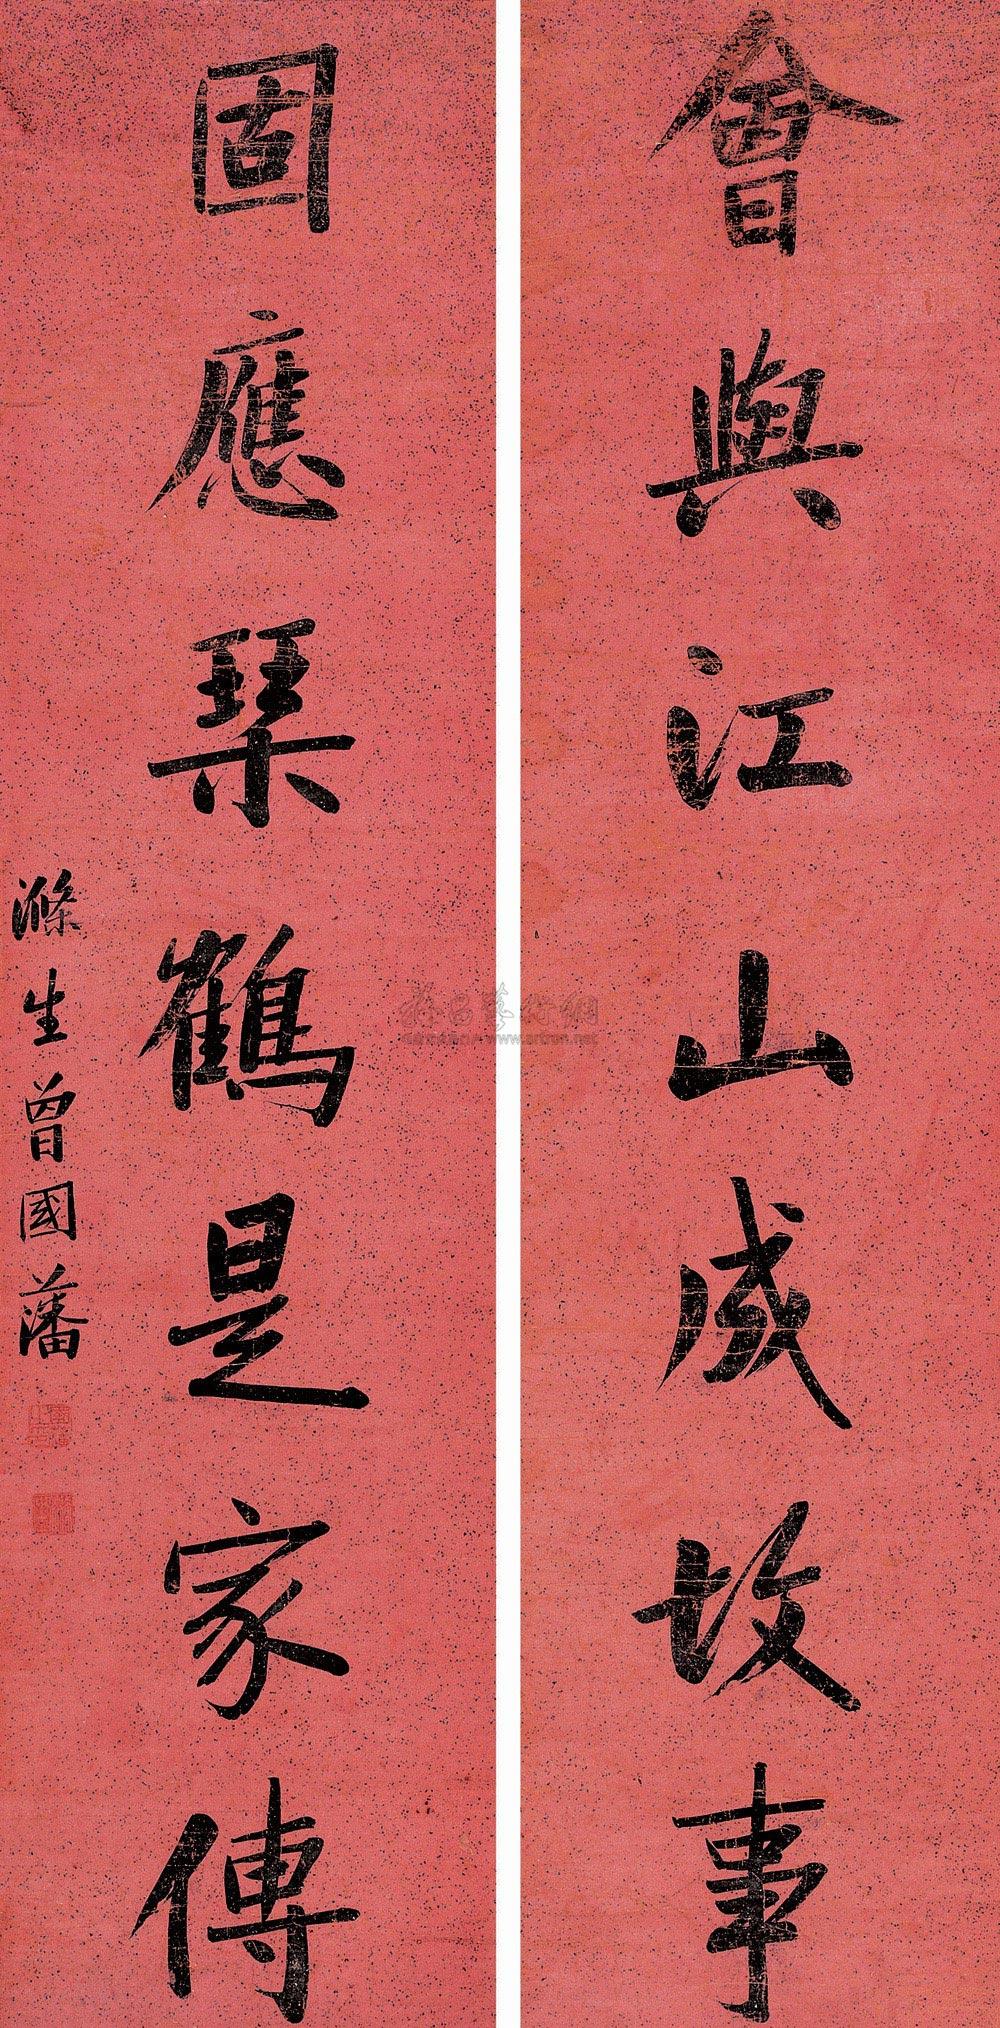 會與江山成故事
固應琹鶴是家傳
滌生曾國藩
www.artron.net